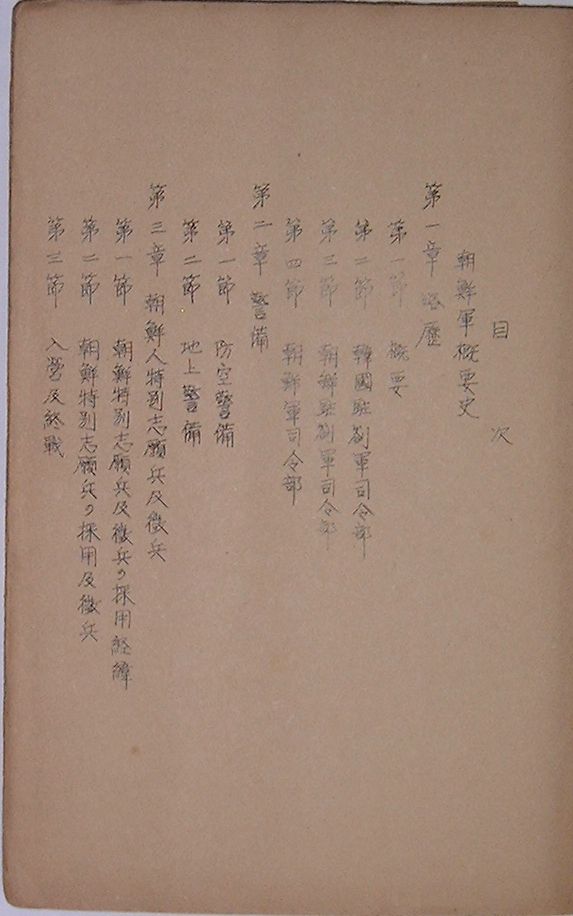 目次
朝鮮軍概要史
第一章 略歴
第一節 概要
第二節 韓國駐劄軍司令部
第三節 朝鮮駐劄軍司令部
第四節 朝鮮軍司令部
第二章 警備
第一節 防空警備
第二節 地上警備
第三章 朝鮮人特別志願兵及徴兵
第一節 朝鮮特別志願兵及徴兵ノ採用経緯
第二節 朝鮮特別志願兵ノ採用及徴兵
第三節 入営及終戦